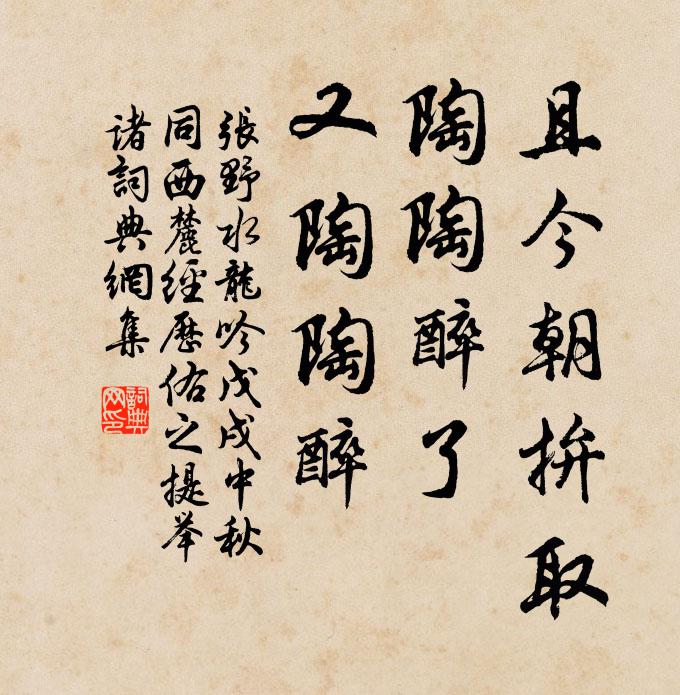 且今朝拚取
陶陶醉了
又陶陶醉
張野水龍吟戊戌中秋
同西麓經歷佑之提举
诸詞典網集
詞典网印